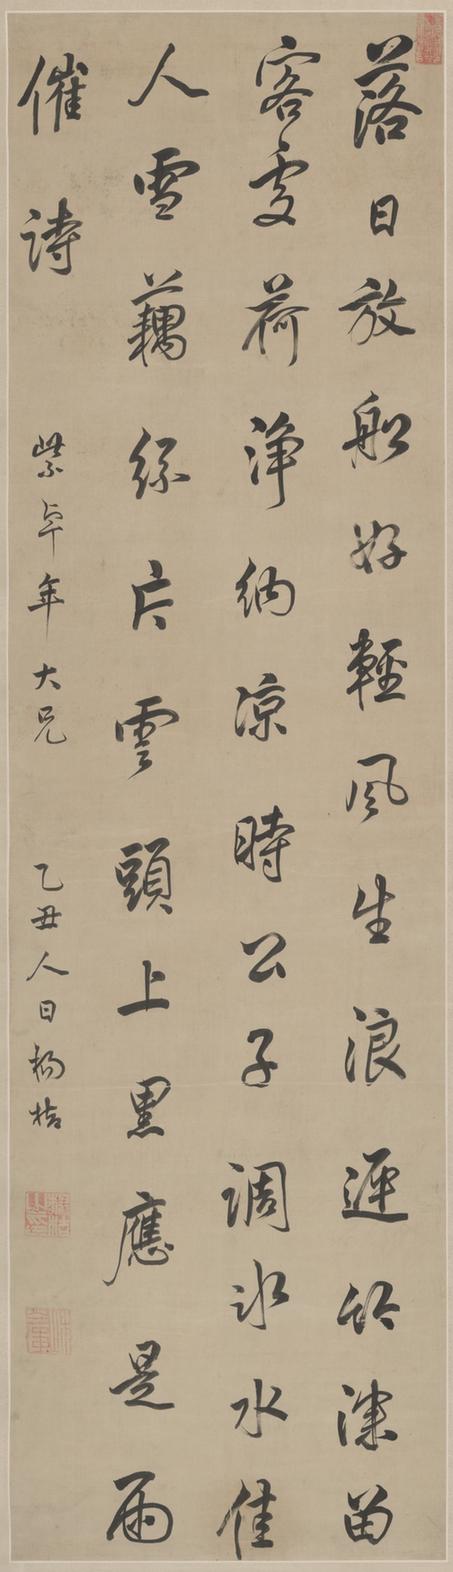 落日放船好輕風生浪遲竹深留
客處荷淨納涼時公子調冰水佳
人雪藕絲片雲頭上黑應是雨
催詩
紫年大兄
乙丑人日楊